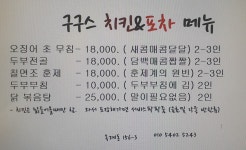 구구스 치킨&포차 메뉴
오징어 초 무침 - 18,000. ( 새콤매콤달달 ) 2-3인
두부전골 - 18,000. ( 담백매콤짭짤 ) 2-3인
칠면조 훈제 - 18,000. ( 훈제계의 원빈 ) 2-3인
두부부침 - 10,000. ( 두부부침에 김 ) 2인
닭 볶음탕 - 25,000. ( 말이필요없음 ) 2인
010 5402 5243